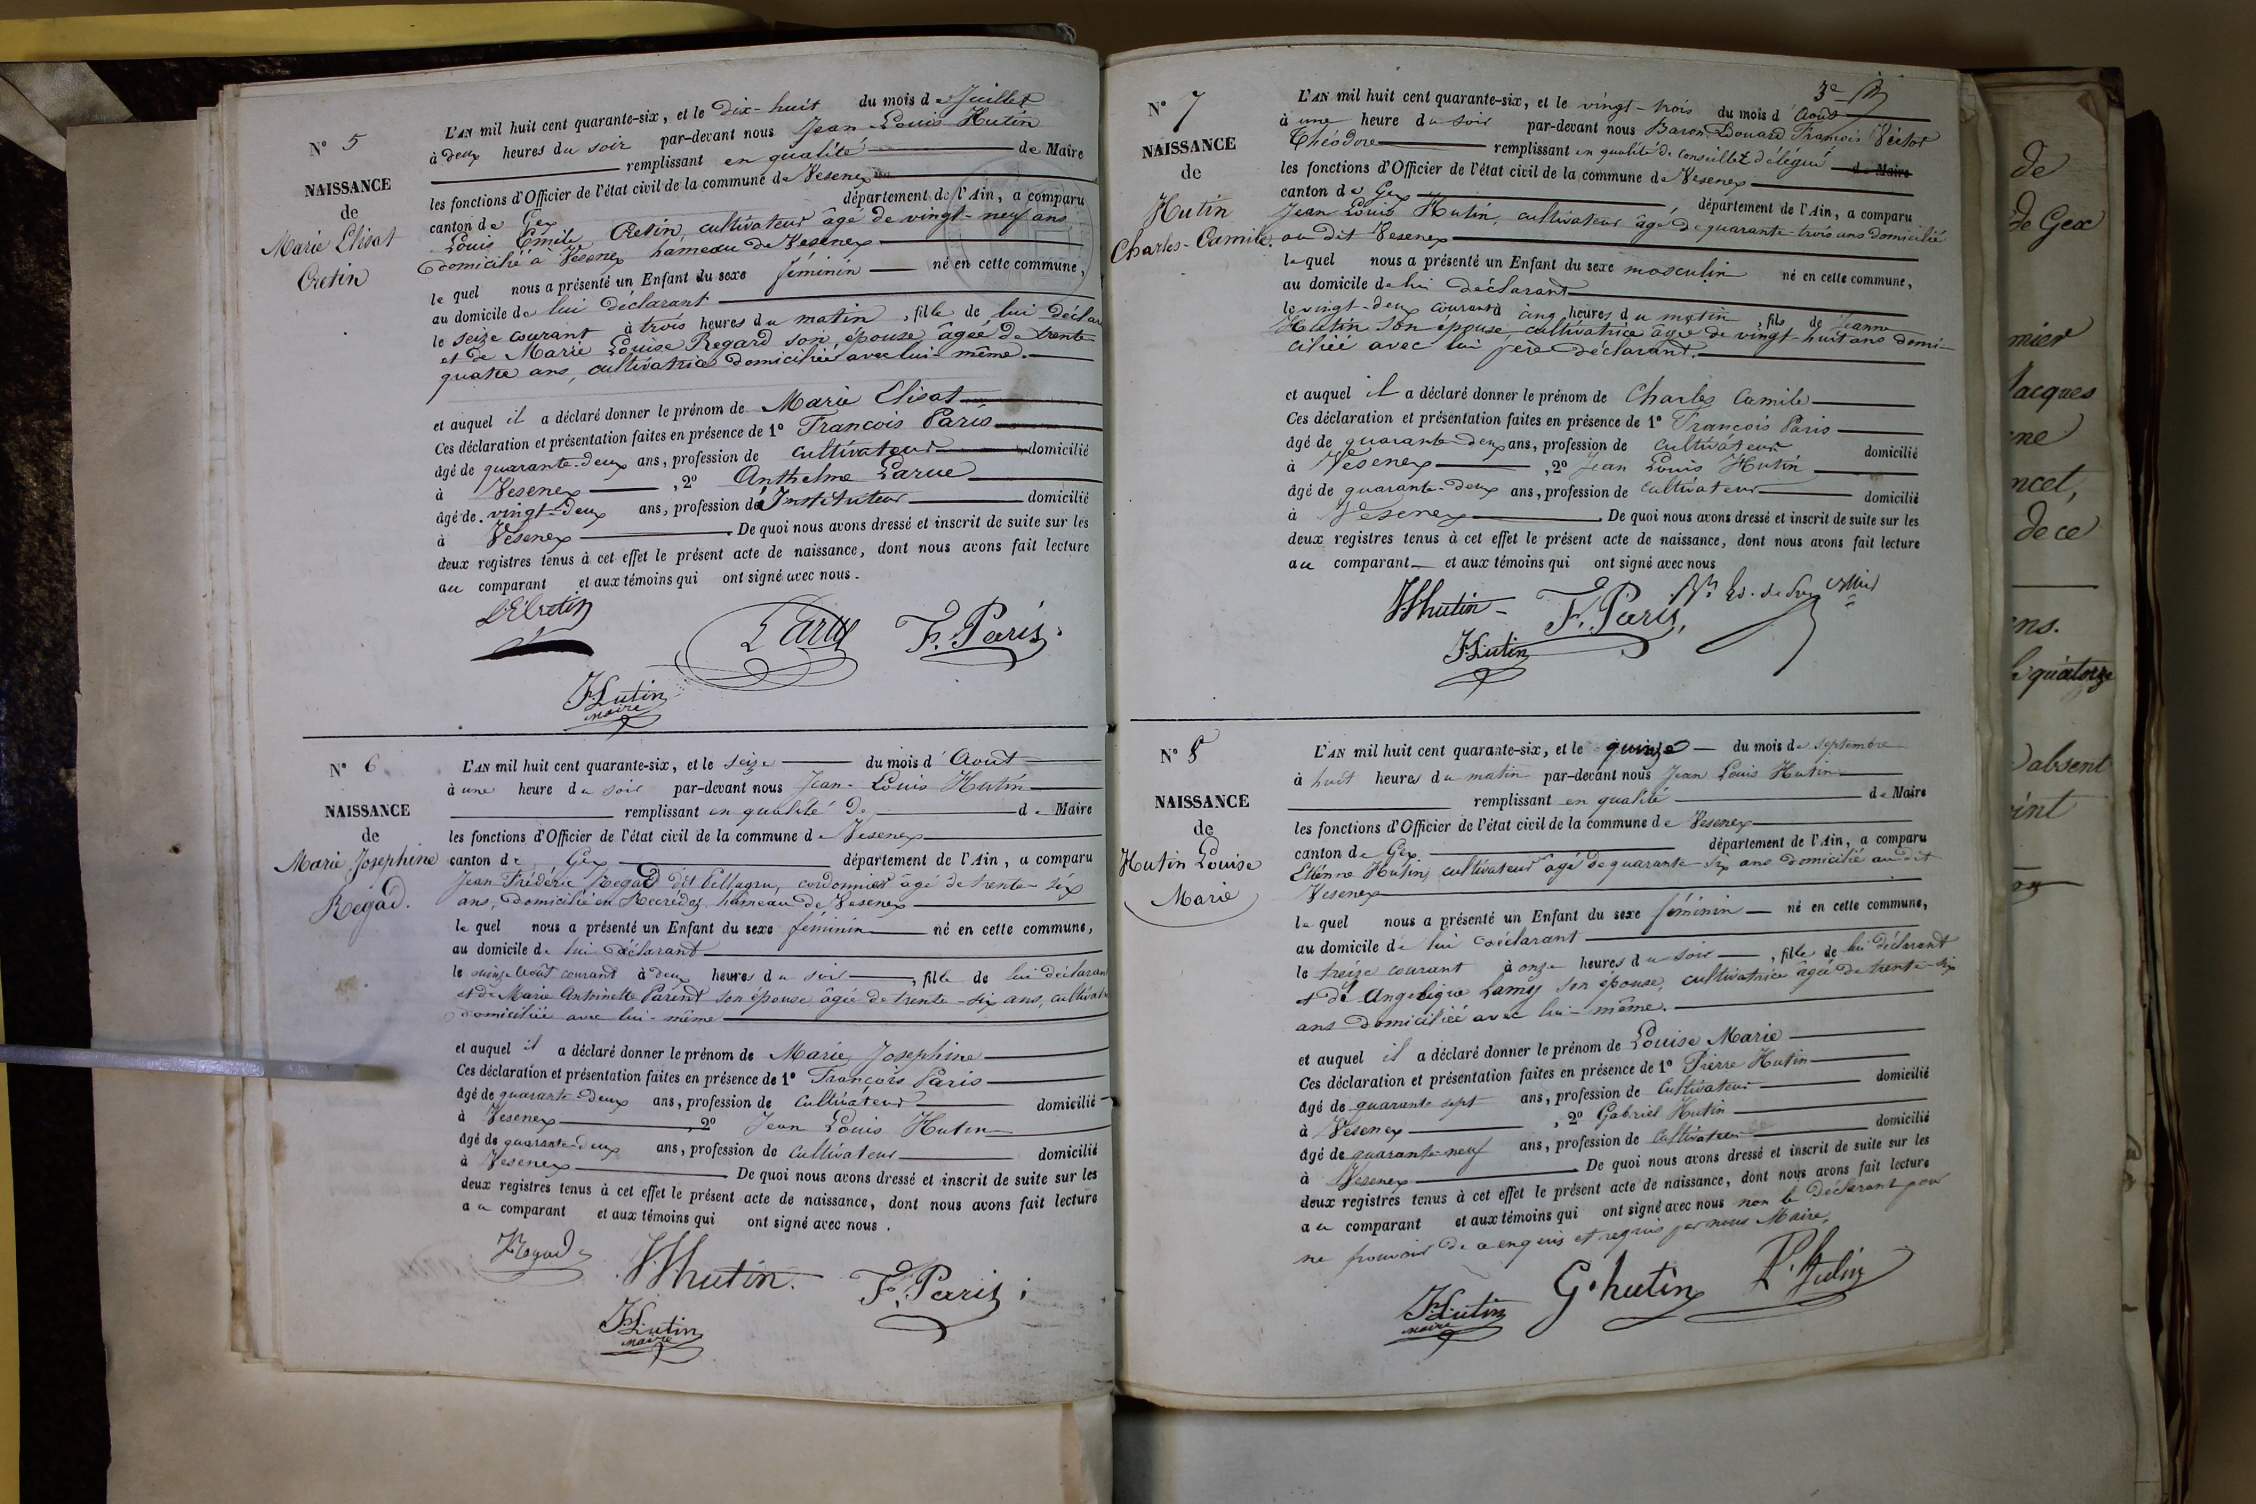 N° 5
NAISSANCE
de
Marie Elisat
Cretin
L'AN mil huit cent quarante-six, et le dix-huit du mois de Juillet
à deux heures du soir par-devant nous Jean-Louis Hutin
remplissant en qualité de Maire
les fonctions d'Officier de l'état civil de la commune de Vesenex
canton de Gex département de l'Ain, a comparu
Louis Emile Cretin, cultivateur âgé de vingt-neuf ans
domicilié à Vesenex hameau de Vesenex
le quel nous a présenté un Enfant du sexe féminin né en cette commune,
au domicile de lui déclarant
le seize courant à trois heures du matin, fille de lui déclar
et de Marie Louise Regard son épouse âgée de trente
quatre ans, cultivatrice domiciliée avec lui-même.
et auquel il a déclaré donner le prénom de Marie Elisat
Ces déclaration et présentation faites en présence de 1° Francois Paris
âgé de quarante-deux ans, profession de cultivateur domicilié
à Vesenex, 2° Anthelme Larue
âgé de vingt-deux ans, profession de Instituteur domicilié
à Vesenex. De quoi nous avons dressé et inscrit de suite sur les
deux registres tenus à cet effet le présent acte de naissance, dont nous avons fait lecture
au comparant et aux témoins qui ont signé avec nous.
L.E. Cretin
Larue F. Paris
JLutin
maire
N° 6
NAISSANCE
de
Marie Josephine
Régad.
L'AN mil huit cent quarante-six, et le seize du mois d'Aout
à une heure du soir par-devant nous Jean-Louis Hutin
remplissant en qualité de de Maire
les fonctions d'Officier de l'état civil de la commune de Vesenex
canton de Gex département de l'Ain, a comparu
Jean Frédéric Regad dit Bellagru, cordonnier âgé de trente-six
ans, domicilié en hameau de Vesenex
le quel nous a présenté un Enfant du sexe féminin né en cette commune,
au domicile de lui déclarant
le Août courant à deux heures du soir, fille de lui déclaran
et de Marie Antoinette Parent son épouse âgée de trente-six ans, cultivat
domiciliée avec lui-même
et auquel il a déclaré donner le prénom de Marie Josephine
Ces déclaration et présentation faites en présence de 1° Francois Paris
âgé de quarante-deux ans, profession de cultivateur domicilié
à Vesenex, 2° Jean Louis Hutin
âgé de quarante-deux ans, profession de Cultivateur domicilié
à Vesenex De quoi nous avons dressé et inscrit de suite sur les
deux registres tenus à cet effet le présent acte de naissance, dont nous avons fait lecture
au comparant et aux témoins qui ont signé avec nous.
Regad
hutin. F. Paris
JLutin
maire
3e
N° 7
NAISSANCE
de
Hutin
Charles-Camile.
L'AN mil huit cent quarante-six, et le vingt-trois du mois d'Août
à une heure du soir par-devant nous Baron Edouard Francois
Théodore remplissant en qualité de conseiller délégué de Maire
les fonctions d'Officier de l'état civil de la commune de Vesenex
canton de Gex département de l'Ain, a comparu
Jean Louis Hutin, cultivateur âgé de quarante-trois ans domicilié
au dit Vesenex
le quel nous a présenté un Enfant du sexe masculin né en cette commune,
au domicile de lui déclarant
le vingt-deux courant à cinq heures du matin, fils de Jeanne
Hutin son épouse cultivatrice âgée de vingt-huit ans domi-
ciliée avec lui père déclarant.
et auquel il a déclaré donner le prénom de Charles Camile
Ces déclaration et présentation faites en présence de 1° Francois Paris
âgé de quarante-deux ans, profession de cultivateur domicilié
à Vesenex, 2° Jean Louis Hutin
âgé de quarante-deux ans, profession de cultivateur domicilié
à Vesenex. De quoi nous avons dressé et inscrit de suite sur les
deux registres tenus à cet effet le présent acte de naissance, dont nous avons fait lecture
au comparant et aux témoins qui ont signé avec nous
hutin F. Paris,
JLutin
N° 8
NAISSANCE
de
Hutin Louise
Marie
L'AN mil huit cent quarante-six, et le quinze du mois de septembre
à huit heures du matin par-devant nous Jean Louis Hutin
remplissant en qualité de Maire
les fonctions d'Officier de l'état civil de la commune de Vesenex
canton de Gex département de l'Ain, a comparu
Etienne Hutin, cultivateur âgé de quarante-six ans domicilié au dit
Vesenex
le quel nous a présenté un Enfant du sexe féminin né en cette commune,
au domicile de lui déclarant
le treize courant à onze heures du soir, fille de lui déclarant
et de Angelique Lamy son épouse, cultivatrice âgée de trente-six
ans domiciliée avec lui-même.
et auquel il a déclaré donner le prénom de Louise Marie
Ces déclaration et présentation faites en présence de 1° Pierre Hutin
âgé de quarante sept ans, profession de Cultivateur domicilié
à Vesenex, 2° Gabriel Hutin
âgé de quarante-neuf ans, profession de Cultivateur domicilié
à Vesenex. De quoi nous avons dressé et inscrit de suite sur les
deux registres tenus à cet effet le présent acte de naissance, dont nous avons fait lecture
au comparant et aux témoins qui ont signé avec nous non le Déclarant pour
ne pouvoir de a enquis et requis par nous Maire.
JLutin
maire
G. hutin
de
de Gex
mier
Jacques
ne
ncet,
de ce
ns.
quatorze
absent
int